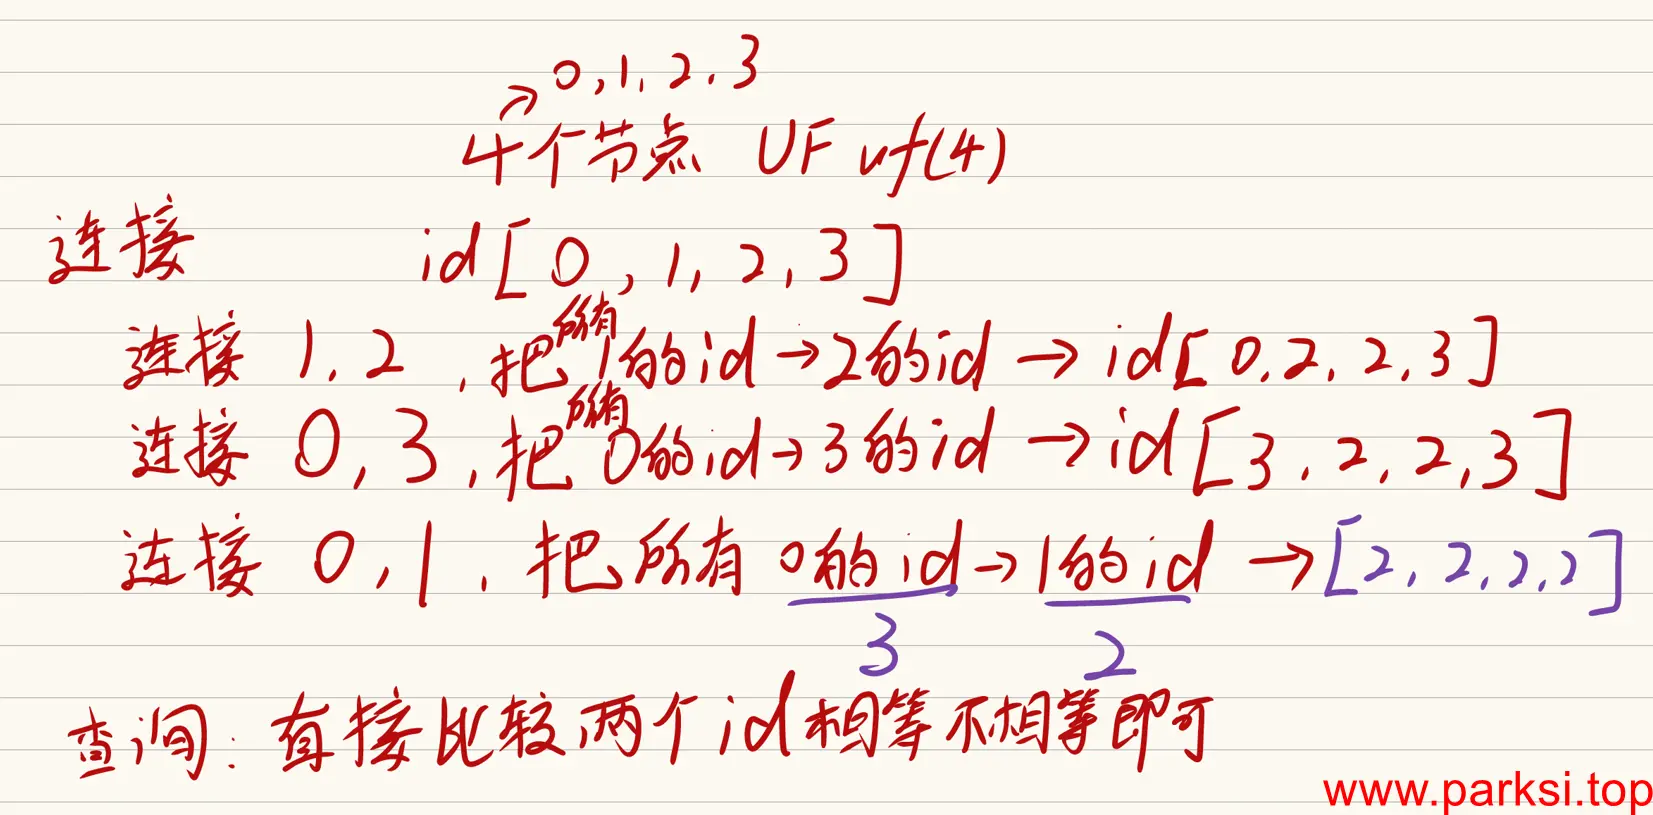 0,1,2,3
4个节点 UF uf(4)
连接 id[0,1,2,3]
连接 1,2,把所有1的id→2的id→id[0,2,2,3]
连接 0,3,把所有0的id→3的id→id[3,2,2,3]
连接 0,1,把所有0的id→1的id→[2,2,2,2]
3 2
查询:直接比较两个id相等不相等即可
www.parksi.top